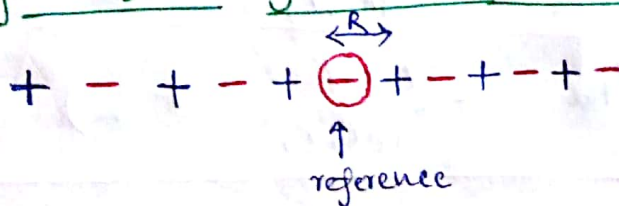 R
+ - + - + - + - + - + -
↑
reference